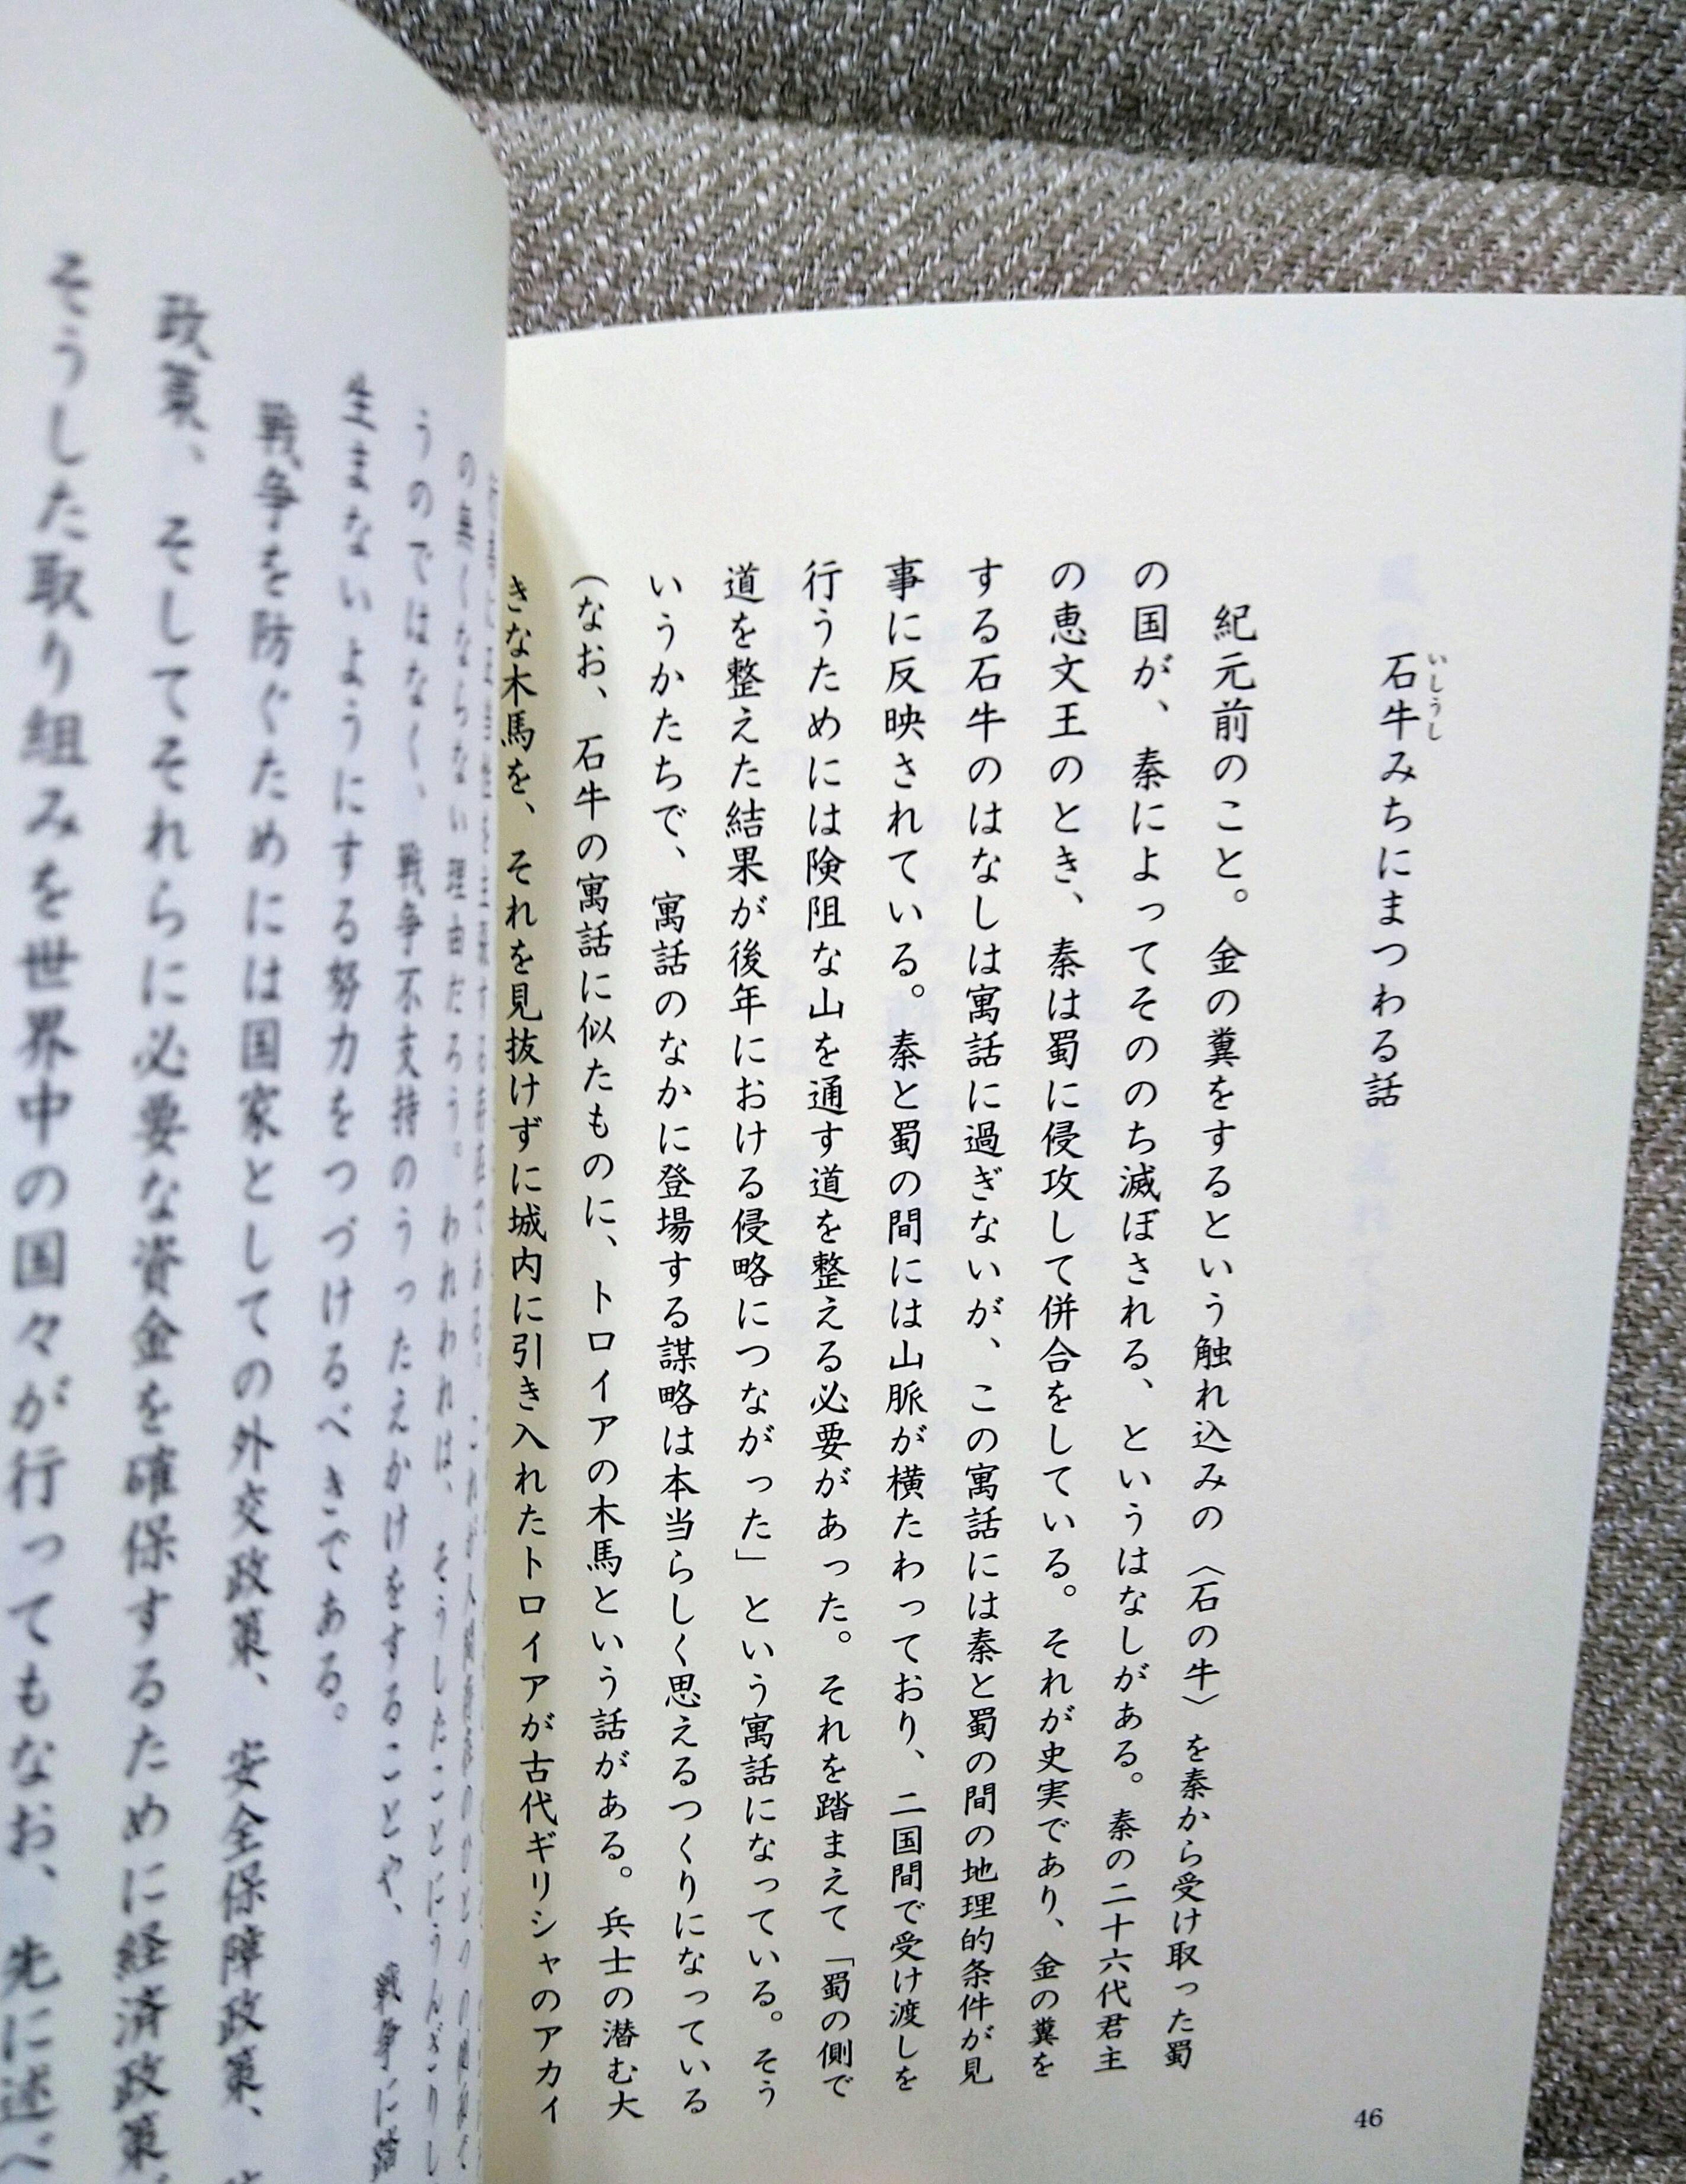 石牛みちにまつわる話
いしうし
紀元前のこと。金の糞をするという触れ込みの〈石の牛〉を秦から受け取った蜀
の国が、秦によってそののち滅ぼされる、というはなしがある。秦の二十六代君主
の恵文王のとき、秦は蜀に侵攻して併合をしている。それが史実であり、金の糞を
する石牛のはなしは寓話に過ぎないが、この寓話には秦と蜀の間の地理的条件が見
事に反映されている。秦と蜀の間には山脈が横たわっており、二国間で受け渡しを
行うためには険阻な山を通す道を整える必要があった。それを踏まえて「蜀の側で
道を整えた結果が後年における侵略につながった」という寓話になっている。そう
いうかたちで、寓話のなかに登場する謀略は本当らしく思えるつくりになっている
(なお、石牛の寓話に似たものに、トロイアの木馬という話がある。兵士の潜む大
きな木馬を、それを見抜けずに城内に引き入れたトロイアが古代ギリシャのアカイ
46
の無くならない理由だろう。われわれは、そうしたことにうんざりし
うのではなく、戦争不支持のうったえかけをすることや、戦争に
生まないようにする努力をつづけるべきである。
戦争を防ぐためには国家としての外交政策、安全保障政策、
政策、そしてそれらに必要な資金を確保するために経済政策
そうした取り組みを世界中の国々が行ってもなお、先に述べ